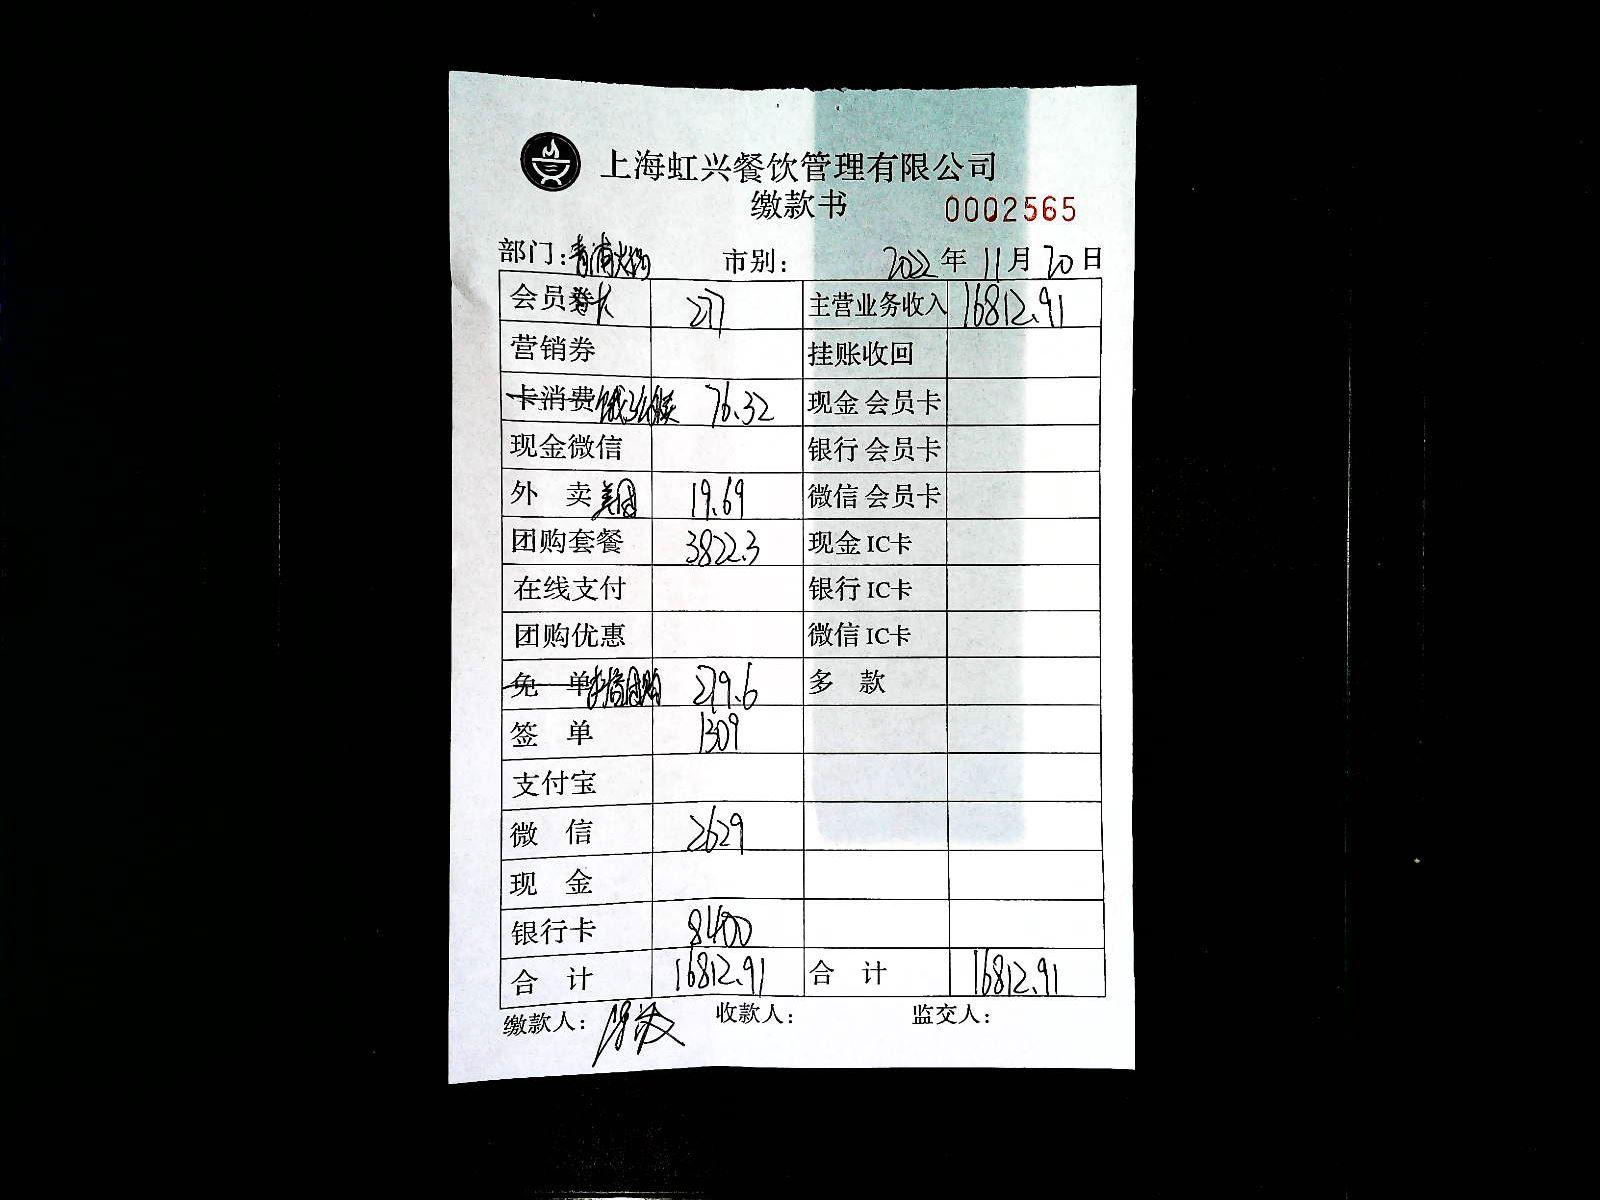 上海虹兴餐饮管理有限公司
缴款书 0002565
部门：青浦 市别： 2022年11月20日
会员卡 277 主营业务收入 16812.91
营销券 挂账收回
卡消费 饿了么外卖 76.32 现金会员卡
现金微信 银行会员卡
外卖 美团 19.69 微信会员卡
团购套餐 3822.3 现金IC卡
在线支付 银行IC卡
团购优惠 微信IC卡
免单 抖音团购 279.6 多款
签单 1309
支付宝
微信 2629
现金
银行卡 8400
合计 16812.91 合计 16812.91
缴款人： 收款人： 监交人：